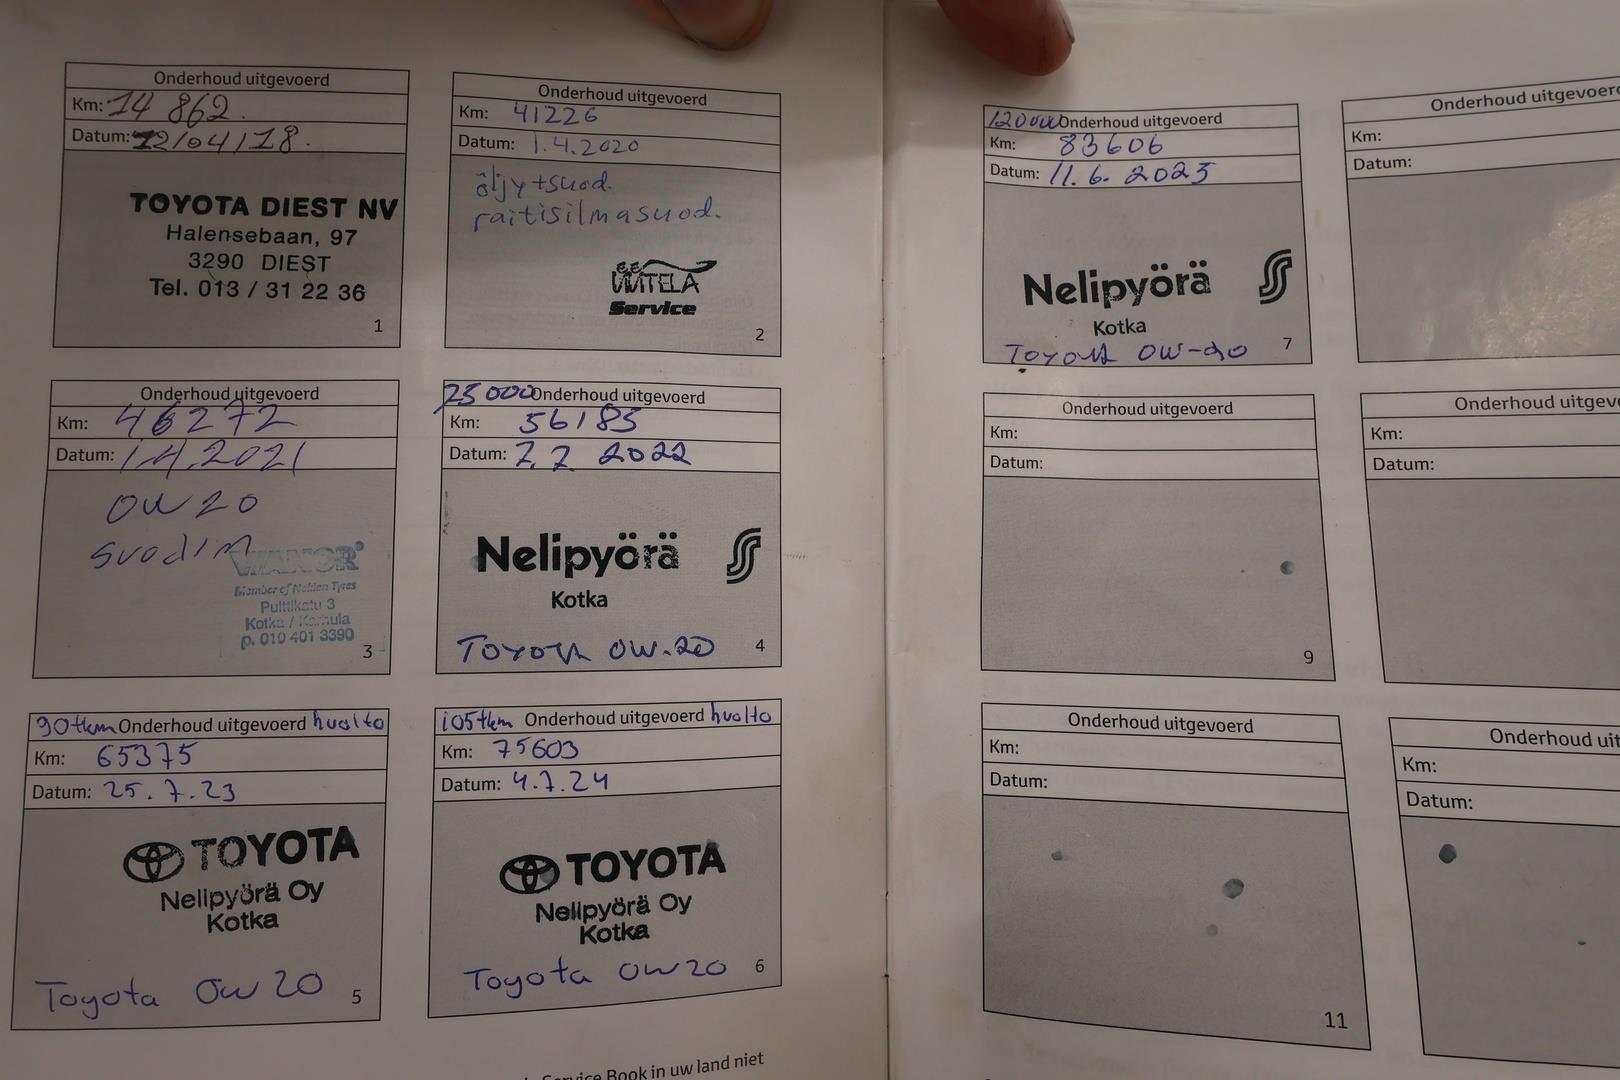 Onderhoud uitgevoerd
Km: 14 862.
Datum: 12/04/18.
TOYOTA DIEST NV
Halensebaan, 97
3290 DIEST
Tel. 013 / 31 22 36
1
Onderhoud uitgevoerd
Km: 41226
Datum: 1.4.2020
öljy+suod.
raitisilmasuod.
Service
2
Onderhoud uitgevoerd
Km: 46272
Datum: 1.4.2021
OW20
suodin
VIANOR
Member of Nokian Tyres
Pulttikatu 3
Kotka / Karhula
p. 010 401 3390
3
Onderhoud uitgevoerd
Km: 56185
Datum: 7.7 2022
Nelipyörä
Kotka
Toyota OW.20
4
90tkm Onderhoud uitgevoerd huolto
Km: 65375
Datum: 25.7.23
TOYOTA
Nelipyörä Oy
Kotka
Toyota OW20
5
105tkm Onderhoud uitgevoerd huolto
Km: 75603
Datum: 4.7.24
TOYOTA
Nelipyörä Oy
Kotka
Toyota OW20
6
Service Book in uw land niet
120000 Onderhoud uitgevoerd
Km: 83606
Datum: 11.6.2025
Nelipyörä
Kotka
Toyota OW-20
7
Onderhoud uitgevoerd
Km:
Datum:
Onderhoud uitgevoerd
Km:
Datum:
9
Onderhoud uitgev
Km:
Datum:
Onderhoud uitgevoerd
Km:
Datum:
11
Onderhoud uit
Km:
Datum: